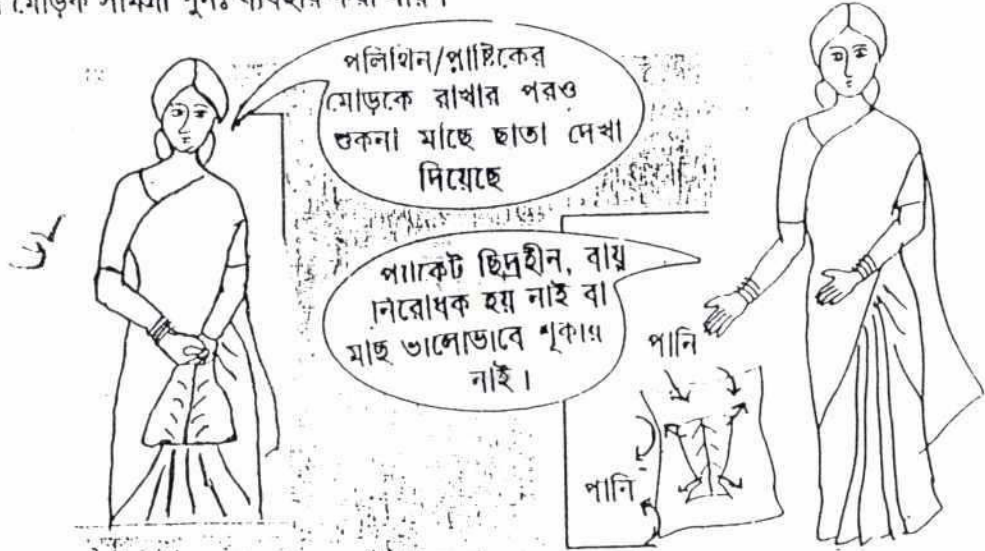 মোড়ক সামগ্রী পুনঃ ব্যবহার করা যায়।
পলিথিন/প্লাষ্টিকের
মোড়কে রাখার পরও
শুকনা মাছে ছাতা দেখা
দিয়েছে
প্যাকেট ছিদ্রহীন, বায়ু
নিরোধক হয় নাই বা
মাছ ভালোভাবে শুকায়
নাই।
পানি
পানি